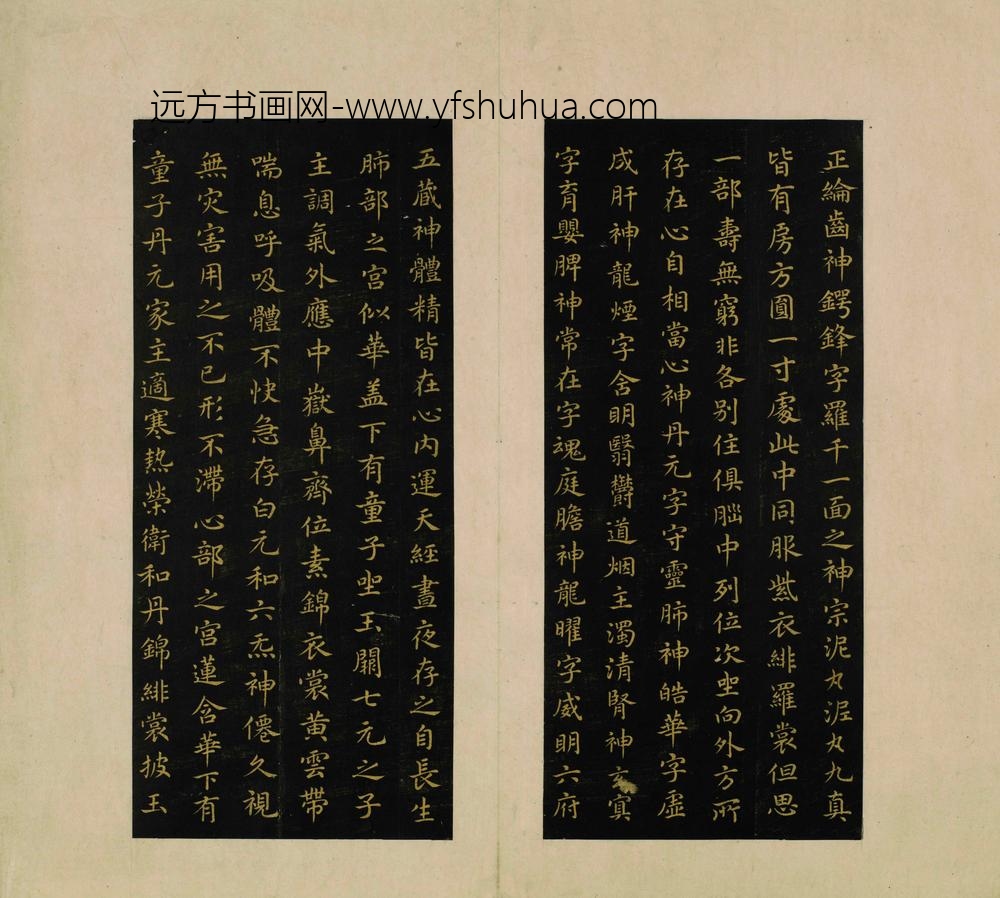 远方书画网-www.yfshuhua.com
正綸齒神鍔鋒字羅千一面之神宗泥丸泥丸九真
皆有房方圓一寸處此中同服紫衣緋羅裳但思
一部壽無窮非各别住俱腦中列位次坐向外方所
存在心自相當心神丹元字守靈肺神皓華字虛
成肝神龍煙字含明翳欝道烟主濁清腎神玄冥
字育嬰脾神常在字魂庭膽神龍曜字威明六府
五藏神體精皆在心內運天經晝夜存之自長生
肺部之宮似華盖下有童子坐玉闕七元之子
主調氣外應中嶽鼻齊位素錦衣裳黄雲帶
喘息呼吸體不快急存白元和六炁神僊久視
無灾害用之不已形不滯心部之宮蓮含華下有
童子丹元家主適寒熱榮衛和丹錦緋裳披玉